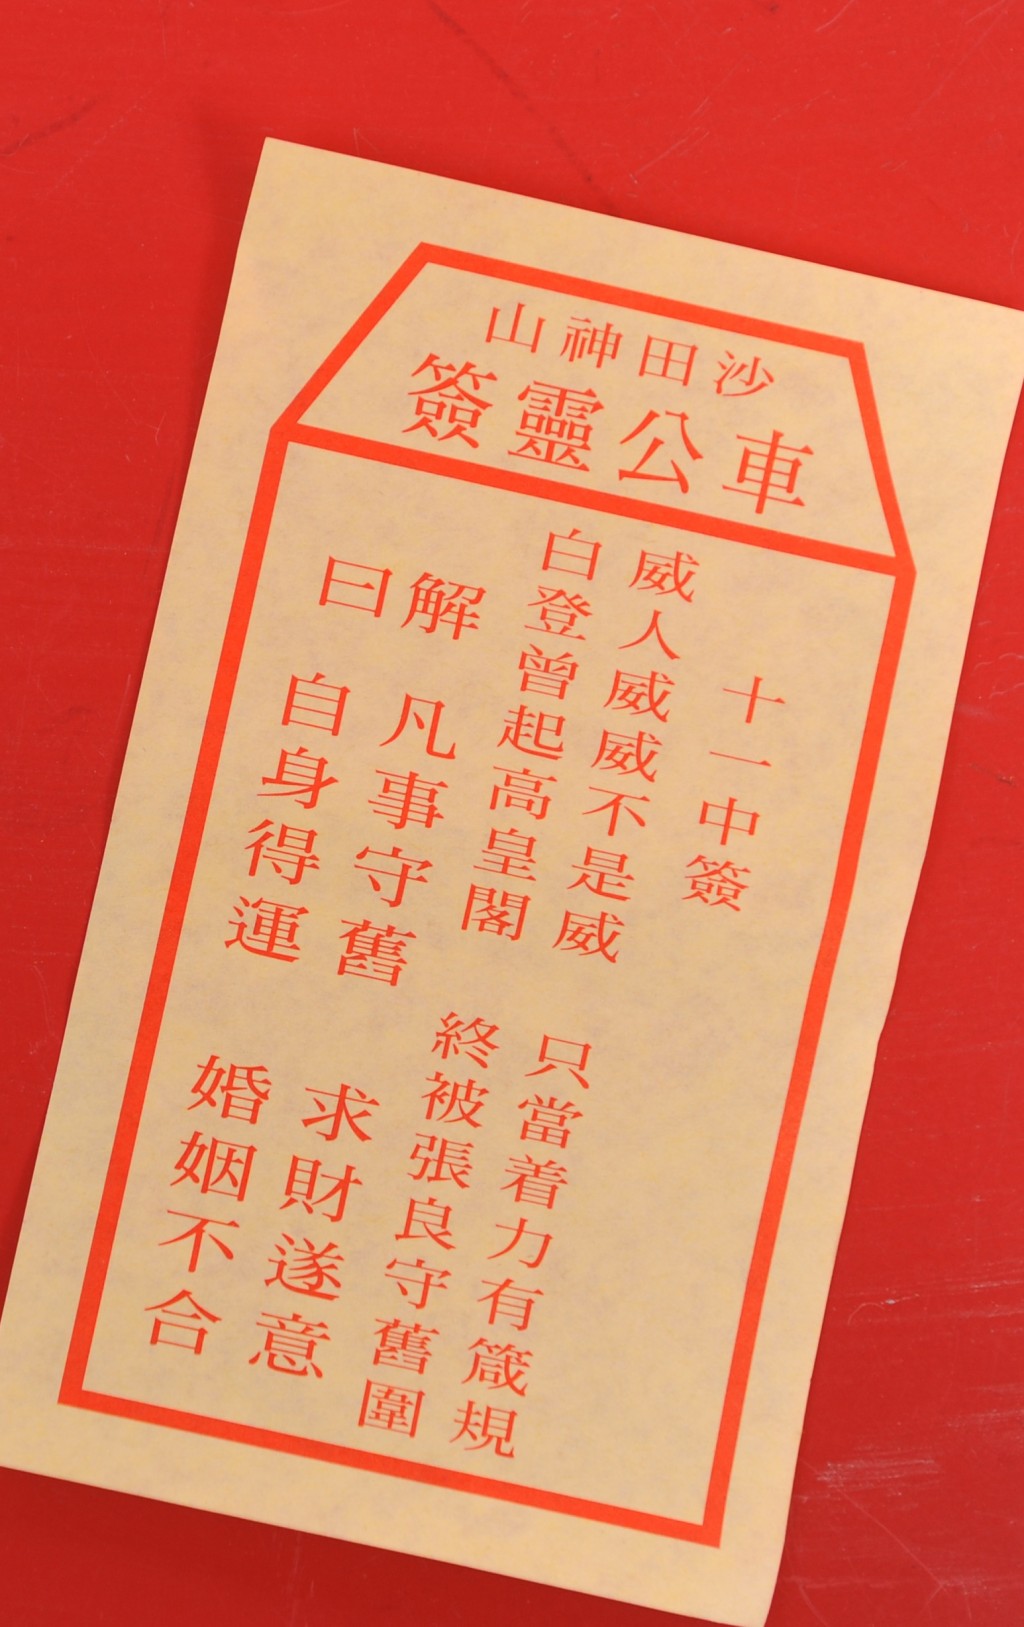 沙田神山
車公靈簽
十一中簽
威人威威不是威
只當着力有箴規
白登曾起高皇閣
終被張良守舊圍
解曰
凡事守舊
求財遂意
自身得運
婚姻不合